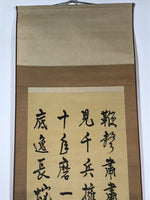 鞭聲肅肅
見千兵擁
十年磨一
底逸長蛇